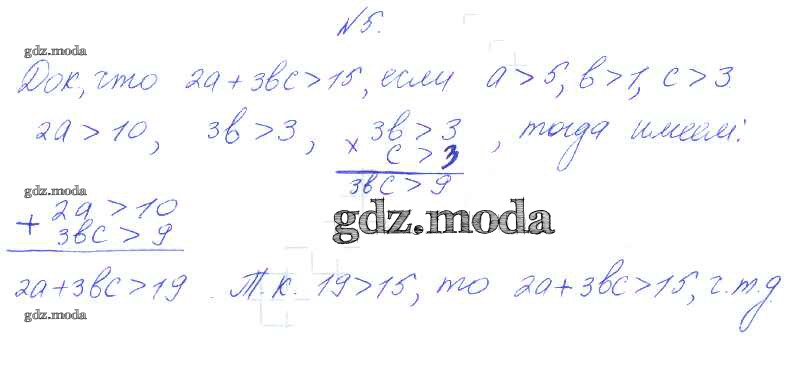 №5.
gdz.moda
Док, что 2а+3вс>15, если а>5, в>1, с>3
2а>10, 3в>3, × 3в>3 , тогда имеем:
с>3
3вс>9
gdz.moda
+ 2а>10
3вс>9
gdz.moda
2а+3вс>19. Т.к. 19>15, то 2а+3вс>15, ч.т.д
gdz.moda